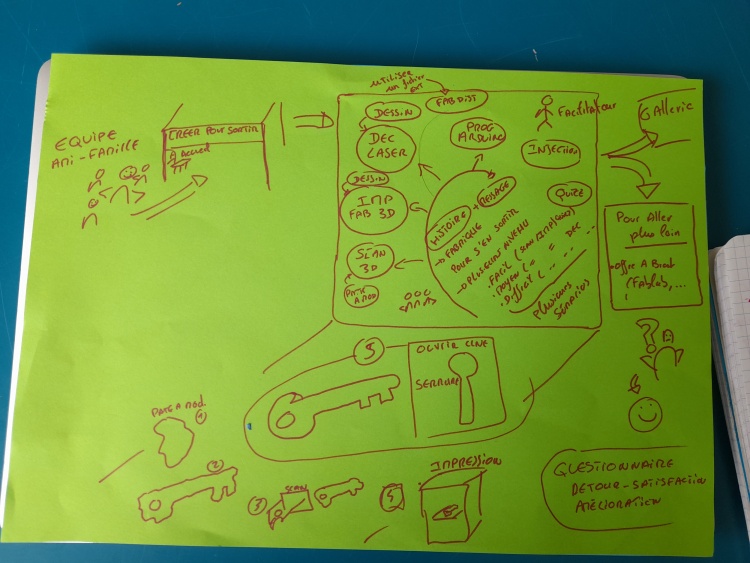 EQUIPE
AMI-FAMILLE
CREER POUR SORTIR
Accueil
utiliser
un fichier
ext
DESSIN
FABDIST
DEC
LASER
PROG
ARDUINO
Facilitateur
INJECTION
DESSIN
IMP
FAB 3D
QUIZZ
SCAN
3D
PATE A MOD
HISTOIRE + MESSAGE
→ FABRIQUE
POUR S'EN SORTIR
→ PLUSIEURS NIVEAU
. FACIL (SCAN IMP
. MOYEN ( = = DEC
. Difficil (
Plusieurs
Scénarios
GALLERIE
Pour Aller
plus loin
→ offre A Brest
(Fablab, ...
?
5
OUVRIR
SERRURE
PATE A MOD.
1
2
3
SCAN
IMPRESSION
QUESTIONNAIRE
DETOUR-SATISFACTION
AMÉLIORATION